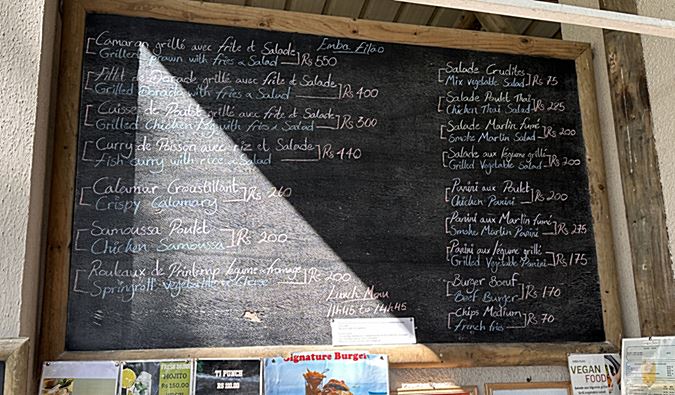 Camaran grillé avec frite et Salade
Grilled prawn with fries & Salad Rs 550
Fillet de Dorade grillé avec frite et Salade
Grilled Dorade with fries & Salad Rs 400
Cuisse de Poulet grillé avec frite et Salade
Grilled Chicken with fries & Salad Rs 300
Curry de Poisson avec riz et Salade
Fish curry with rice & Salad Rs 440
Calamar Croustillant
Crispy Calamary Rs 260
Samoussa Poulet
Chicken Samoussa Rs 200
Rouleaux de Printemp légume & fromage
Springroll vegetable & cheese Rs 200
Lunch Menu
11h45 to 14h45
Salade Crudités
Mix vegetable Salad Rs 75
Salade Poulet Thai
Chicken Thai Salad Rs 225
Salade Martin fumé
Smoke Martin Salad Rs 200
Salade aux légume grillé
Grilled Vegetable Salad Rs 200
Panini aux Poulet
Chicken Panini Rs 200
Panini aux Martin fumé
Smoke Martin Panini Rs 275
Panini aux légume grillé
Grilled Vegetable Panini Rs 175
Burger Boeuf
Beef Burger Rs 170
Chips Medium
French fries Rs 70
MOJITO
FRESH
RS 150.00
TI PUNCH
Signature Burger
VEGAN
FOOD